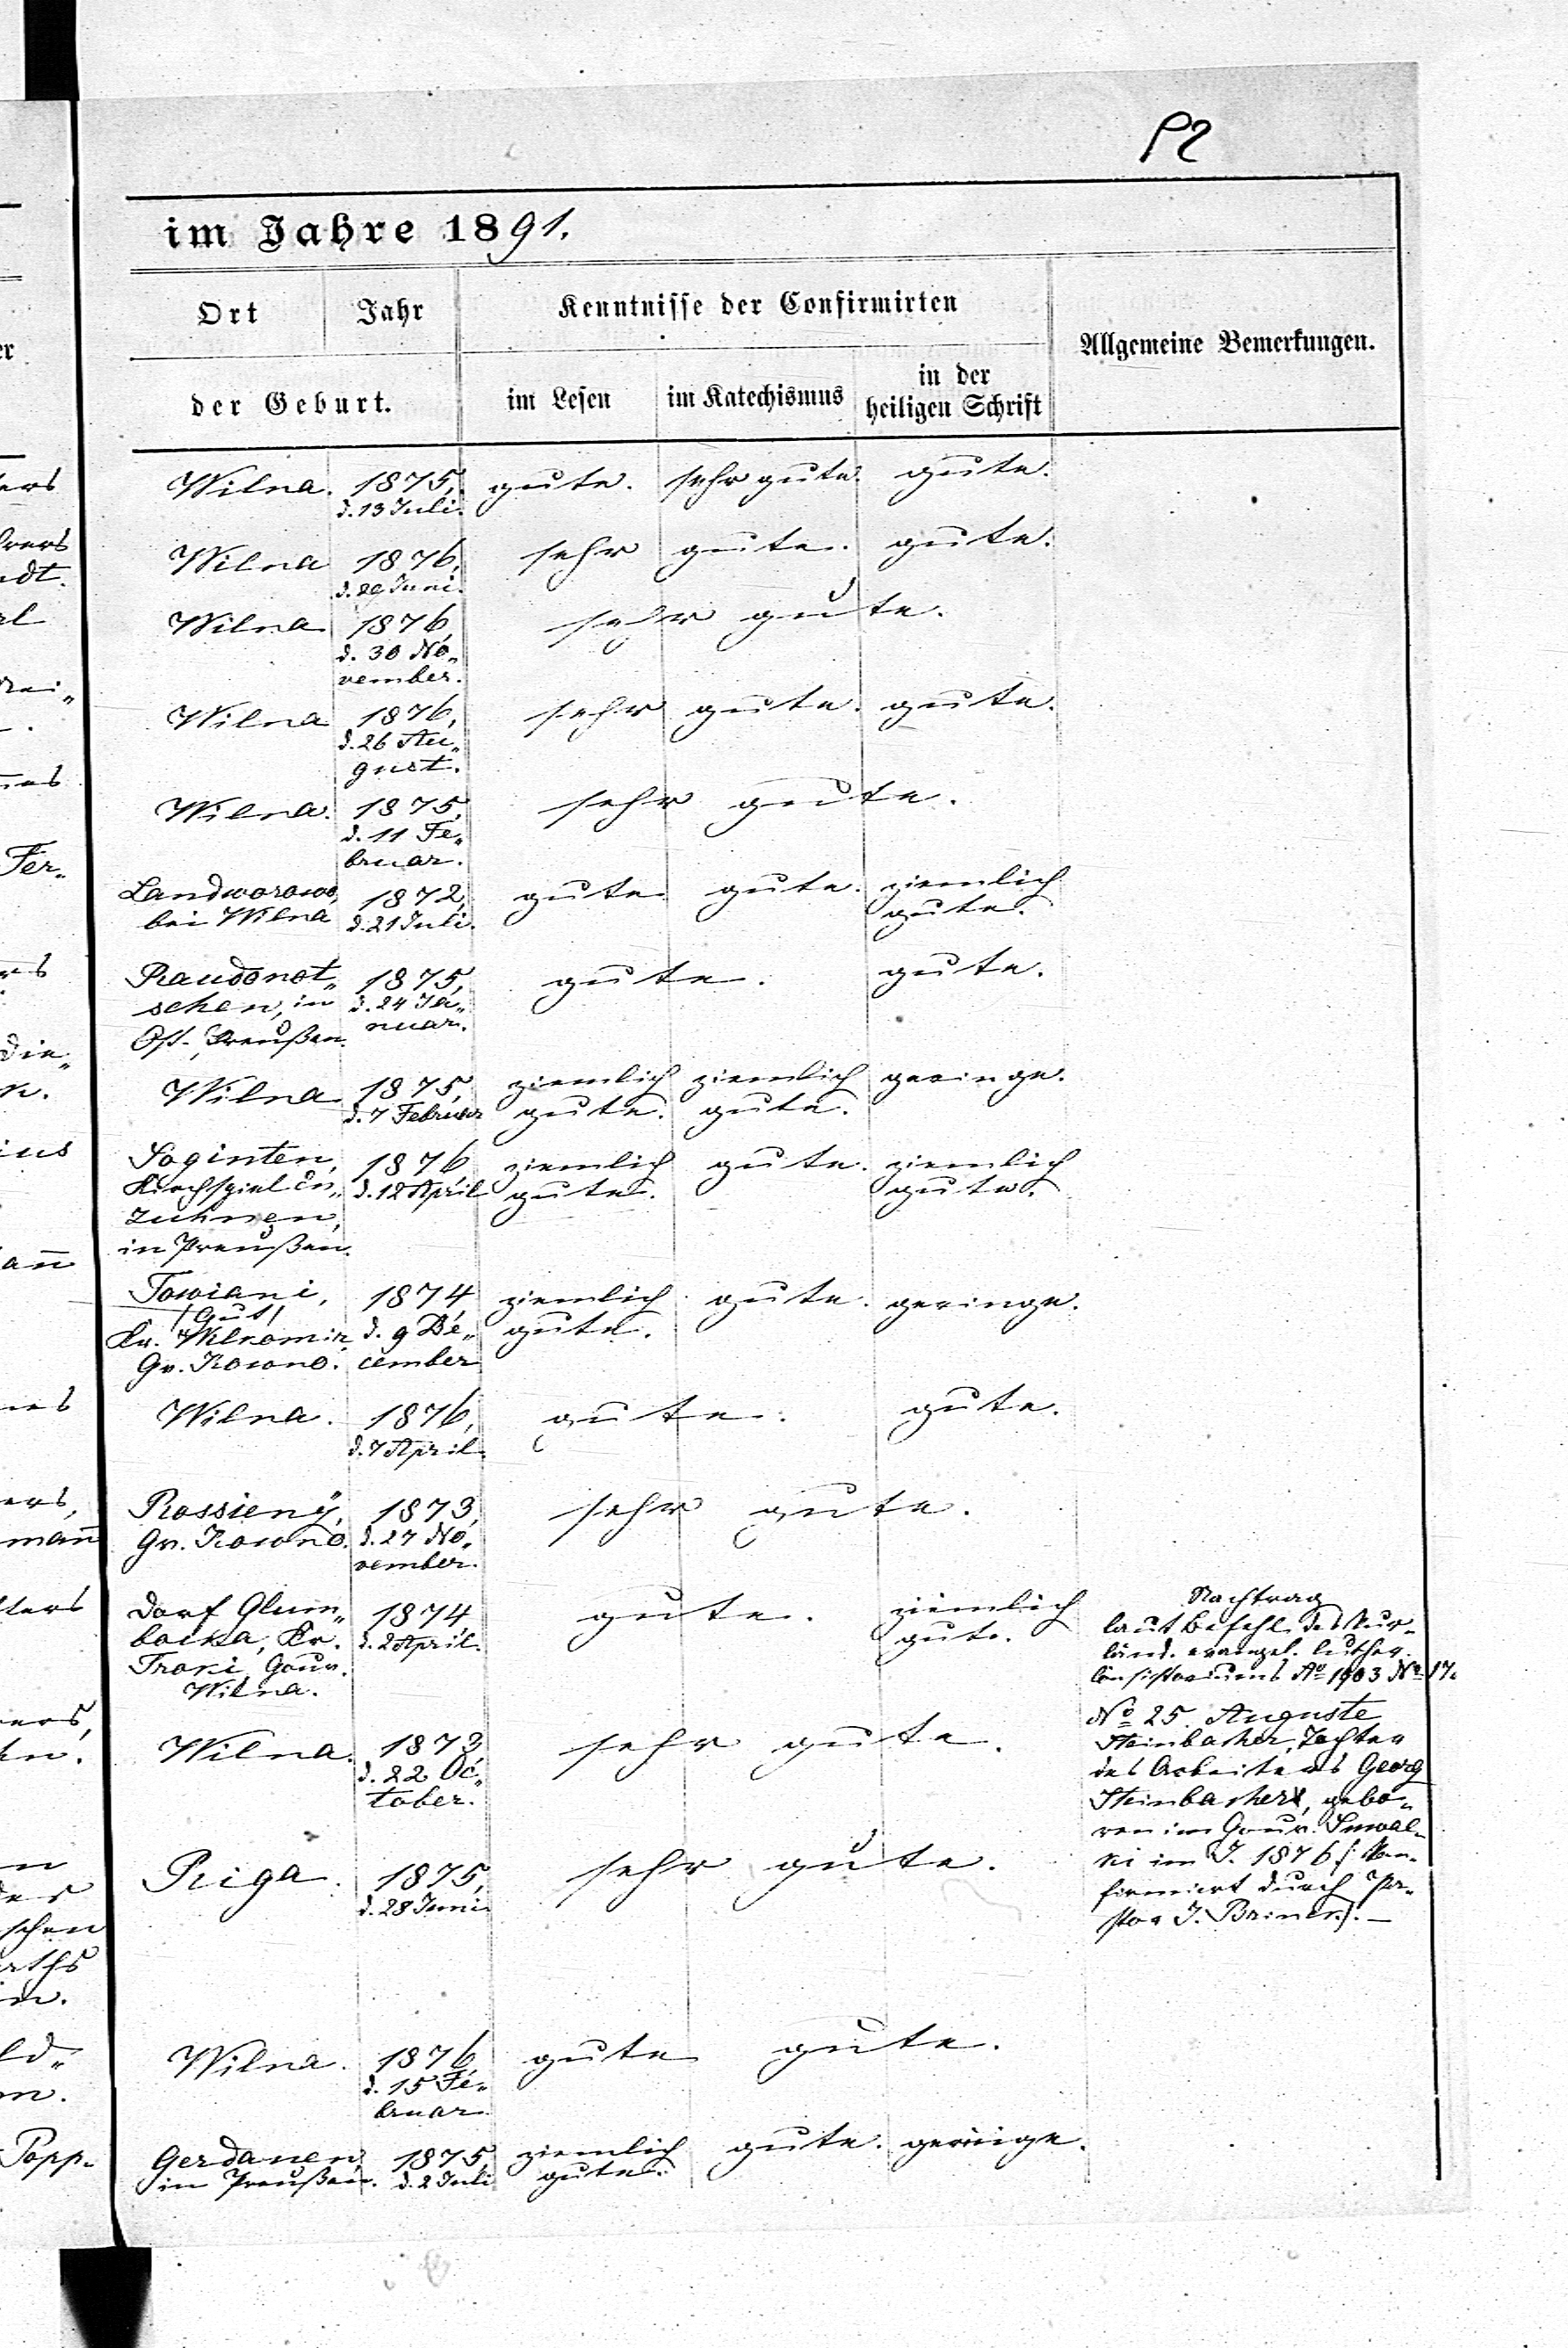 92
im Jahre 1891.
Ort Jahr Kenntnisse der Confirmirten Allgemeine Bemerkungen.
der Geburt. im Lesen im Katechismus in der heiligen Schrift
Wilna. 1875, gute. sehr gute. gute.
d. 13 Juli.
Wilna 1876, sehr gute. gute.
d. 29 Juni.
Wilna 1876, sehr gute.
d. 30 No„
vember.
Wilna 1876, sehr gute. gute.
d. 26 Au„
gust.
Wilna. 1875, sehr gute.
d. 11 Fe„
bruar.
Landworowo, 1872, gute gute. ziemlich
bei Wilna d. 21 Juli. gute.
Raudonat„ 1875, gute. gute.
schen, in d. 24 Ja„
Ost-Preußen. nuar.
Wilna 1875, ziemlich ziemlich geringe.
d. 7 Februar gute. gute.
Soginten, 1876 ziemlich gute. ziemlich
Kirchspiel En„ d. 12 April gute. gute.
zuhnen,
in Preußen.
Towiani, 1874, ziemlich gute. geringe.
/Gut/
Kr. Wilkomir, d. 9 De„ gute.
Gv. Kowno. cember
Wilna. 1876, gute. gute.
d. 7 April.
Rossieny, 1873, sehr gute.
Gv. Kowno. d. 27 No„
vember.
Dorf Glum„ 1874, gute. ziemlich
bocka, Kr. d. 2 April. gute.
Troki, Gouv.
Wilna.
Wilna. 1873 sehr gute.
d. 22 Oc„
tober.
Riga. 1875, sehr gute.
d. 28 Juni
Wilna. 1876, gute gute.
d. 15 Fe„
bruar.
Gerdauen, 1875, ziemlich gute. geringe.
in Preußen. d. 2 Juli gute.
Nachtrag
laut Befehl des Kur-
länd. evangel. luther.
Consistoriums Ao 1903 No 17.
No 25. Auguste
Steinbacher, Tochter
des Arbeiters Georg
Steinbacher, gebo„
ren im Gouv. Suwal„
ki im J. 1876 /: Kon„
firmiert durch Pa„
stor J. Brinck:/. —